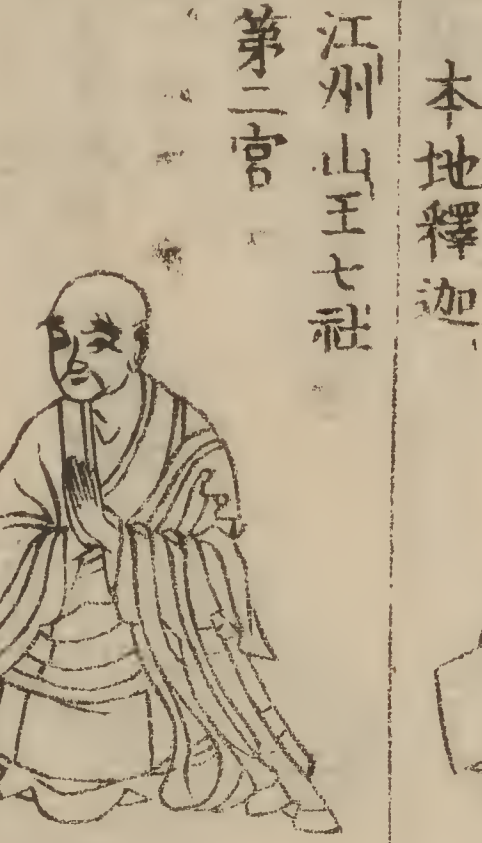 本地釋迦
江州山王七社
第二宮